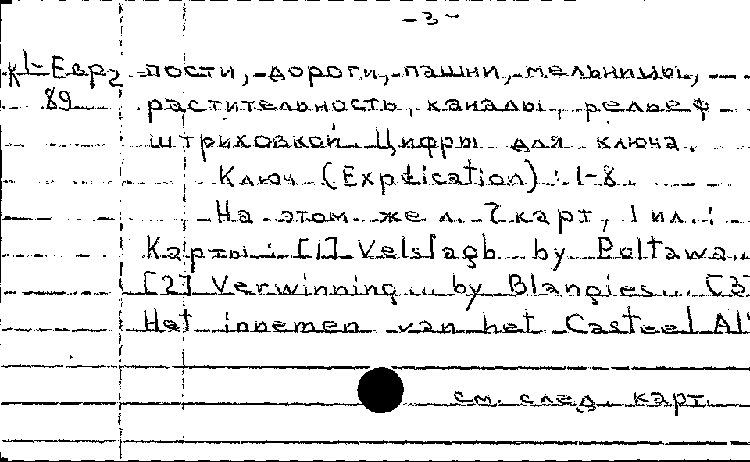 -3-
К 1-Евр 2 пости, дороги, пашни, мельницы,
89 растительность, каналы, рельеф
штриховкой. Цифры для ключа.
Ключ (Explication): 1-8.
На этом же л. 7 карт, 1 ил.:
Карты: [1] Velslagh by Poltawa...
[2] Verwinning... by Blangies... [3]
Het innemen van het Casteel Al
см. след. карт.